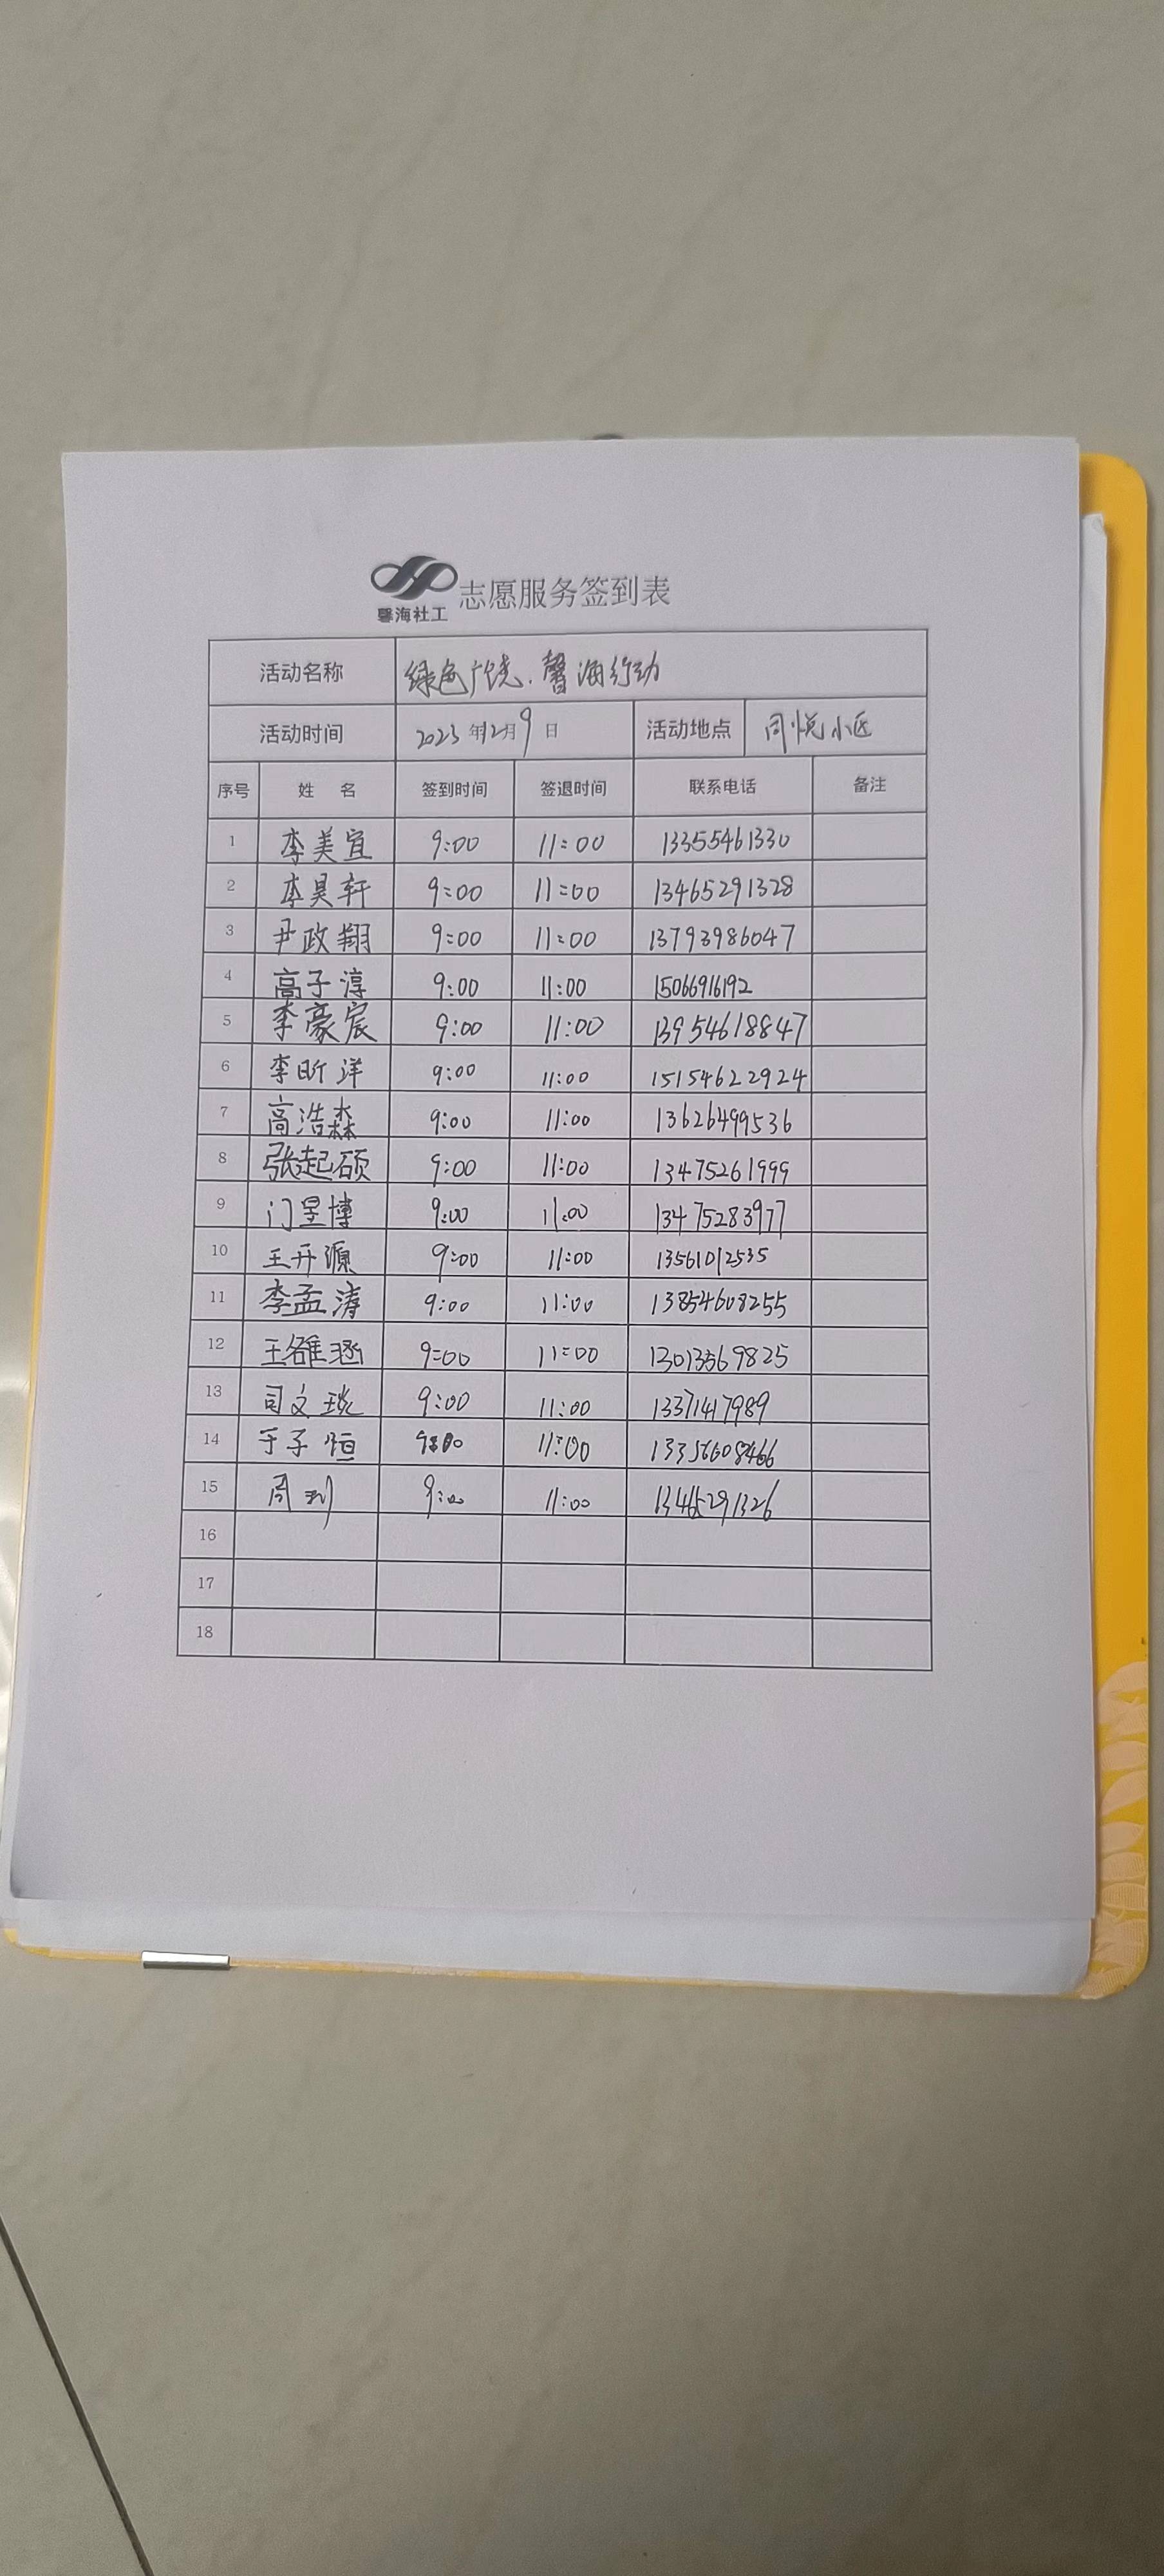 馨海社工 志愿服务签到表
活动名称 绿色广饶.馨海行动
活动时间 2023年2月9日 活动地点 同悦小区
序号 姓 名 签到时间 签退时间 联系电话 备注
1 李美宣 9:00 11:00 13355461330
2 李昊轩 9:00 11:00 13465291328
3 尹政翔 9:00 11:00 13793986047
4 高子淳 9:00 11:00 15066916192
5 李豪宸 9:00 11:00 13954618847
6 李昕洋 9:00 11:00 15154622924
7 高浩森 9:00 11:00 13626499536
8 张起硕 9:00 11:00 13475261999
9 门昱博 9:00 11:00 13475283977
10 王开源 9:00 11:00 13561012535
11 李孟涛 9:00 11:00 13854608255
12 王 涵 9:00 11:00
13 司文琰 9:00 11:00 13371417989
14 于子恒 9:00 11:00
15 周 9:00 11:00 13465291326
16
17
18